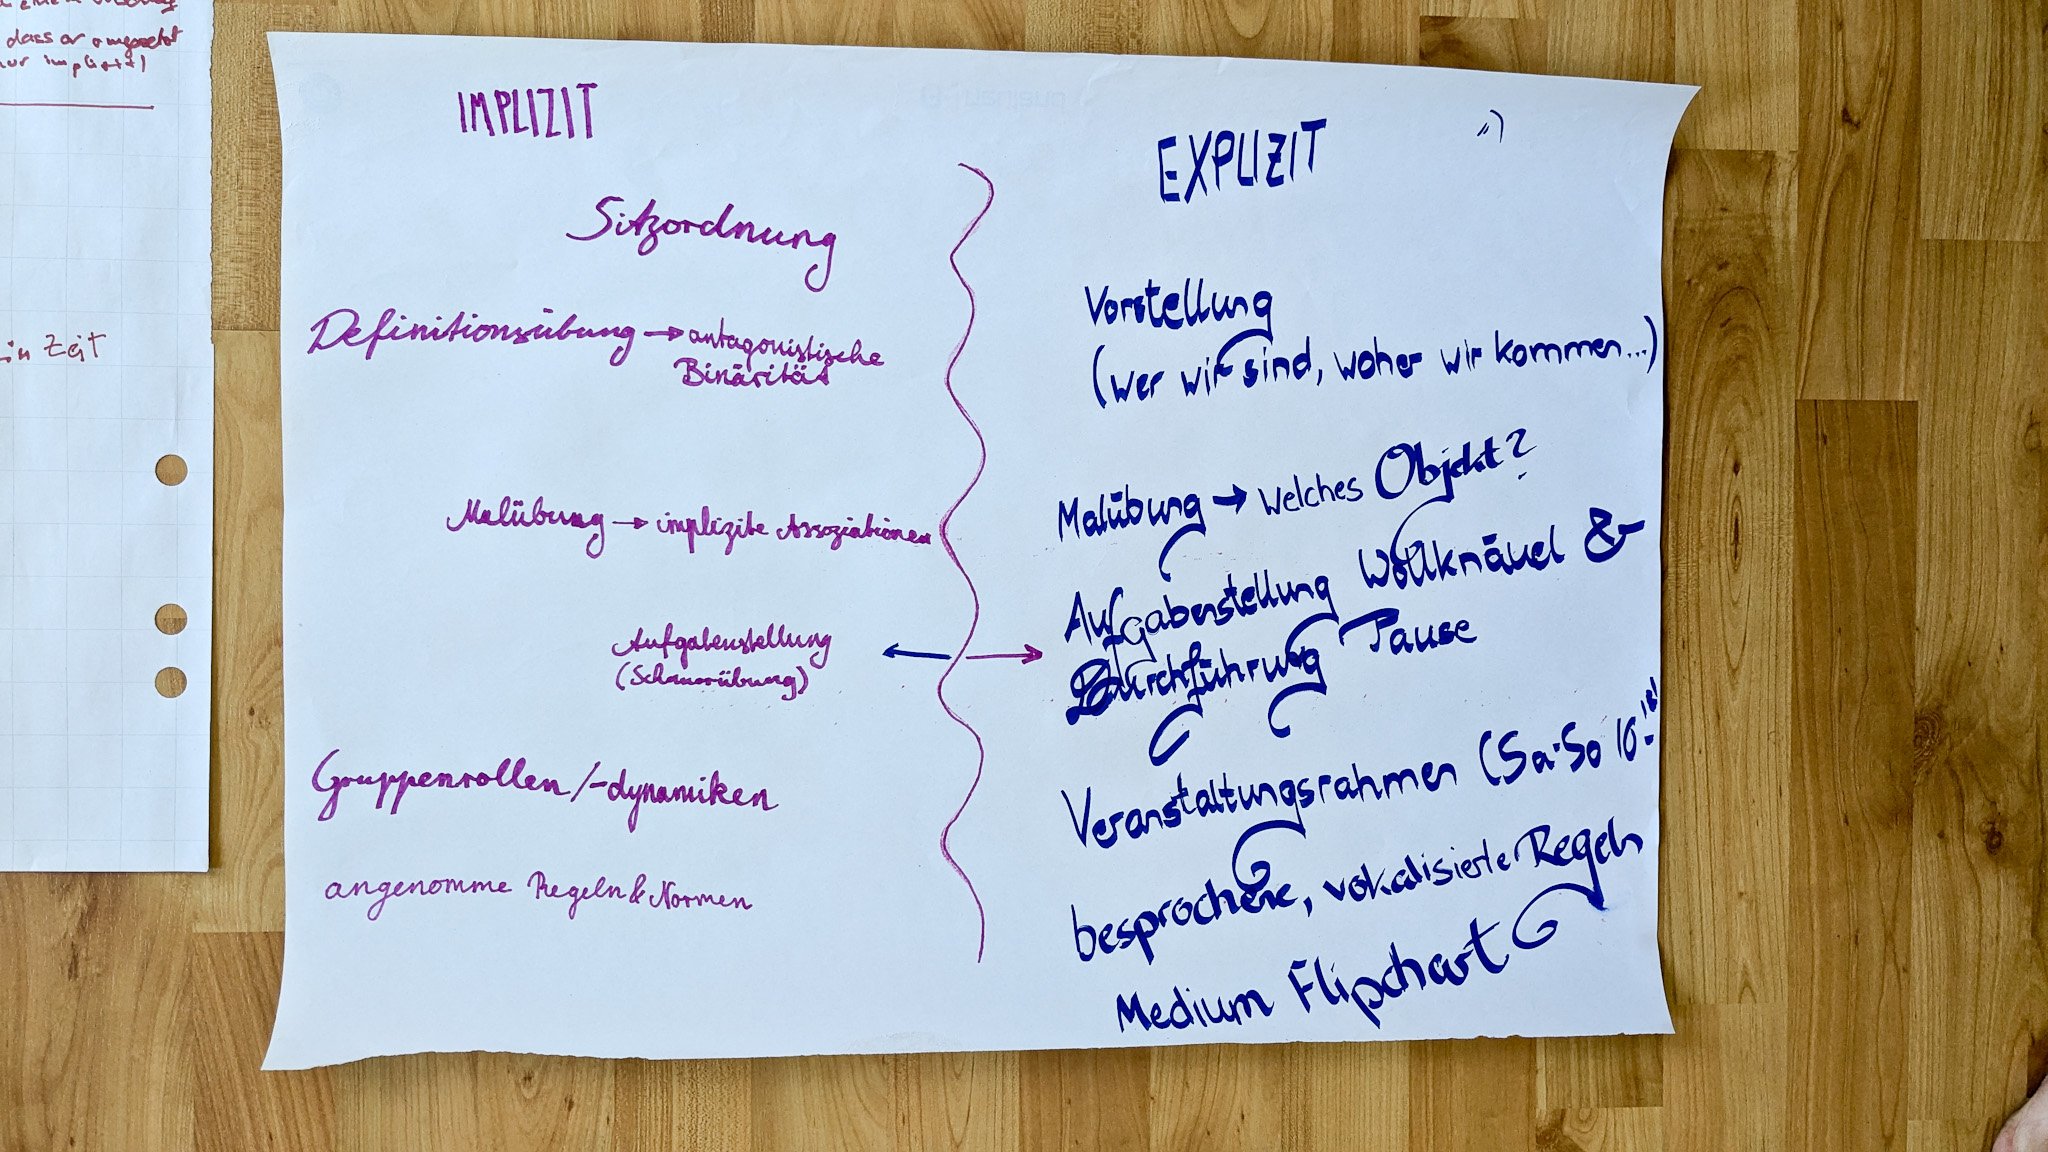 dass er
nur implizit)
in Zeit
IMPLIZIT
Sitzordnung
Definitionsübung → antagonistische
Binärität
Malübung → implizite Assoziationen
Aufgabenstellung
(Schnurübung)
Gruppenrollen/-dynamiken
angenomme Regeln & Normen
EXPLIZIT
Vorstellung
(wer wir sind, woher wir kommen...)
Malübung → Welches Objekt?
Aufgabenstellung Wollknäuel &
Durchführung Pause
Veranstaltungsrahmen (Sa-So 10-
besprochene, vokalisierte Regeln
Medium Flipchart